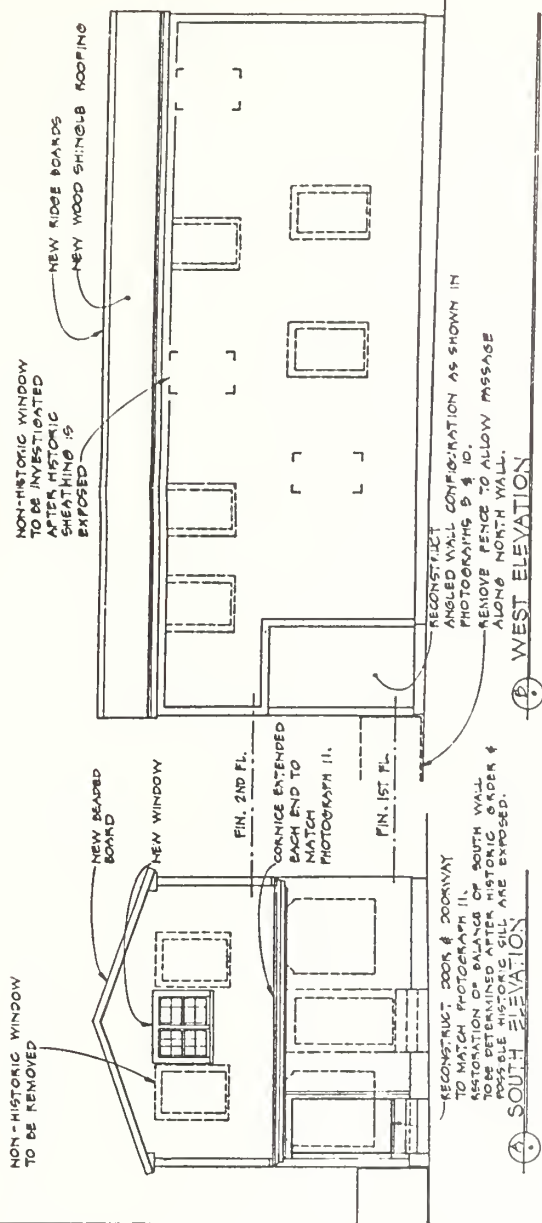 NON-HISTORIC WINDOW
TO BE REMOVED
NEW BEADED
BOARD
NEW WINDOW
FIN. 2ND FL.
CORNICE EXTENDED
EACH END TO
MATCH
PHOTOGRAPH 11.
FIN. 1ST FL.
RECONSTRUCT DOOR & DOORWAY
TO MATCH PHOTOGRAPH 11.
RESTORATION OF BALANCE OF SOUTH WALL
TO BE DETERMINED AFTER HISTORIC GIRDER &
POSSIBLE HISTORIC SILL ARE EXPOSED.
A SOUTH ELEVATION
NON-HISTORIC WINDOW
TO BE INVESTIGATED
AFTER HISTORIC
SHEATHING IS
EXPOSED
NEW RIDGE BOARDS
NEW WOOD SHINGLE ROOFING
RECONSTRUCT
ANGLED WALL CONFIGURATION AS SHOWN IN
PHOTOGRAPHS & 10.
REMOVE FENCE TO ALLOW PASSAGE
ALONG NORTH WALL.
B WEST ELEVATION